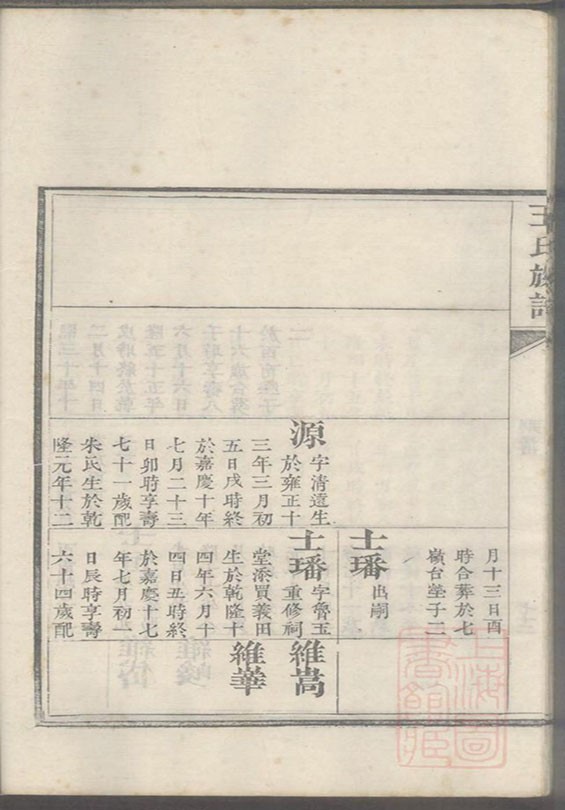 王氏族譜
月十三日酉
時合葬於七
嶺台塋子二
士璠 出嗣
源 字清遠生
於雍正十
三年三月初
五日戌時終
於嘉慶十年
七月二十三
日卯時享壽
七十一歲配
朱氏生於乾
隆元年十二
士璠 字魯玉
重修祠
堂添買義田
生於乾隆十
四年六月十
四日丑時終
於嘉慶十七
年七月初一
日辰時享壽
六十四歲配
維嵩
維華
上海圖
書館藏